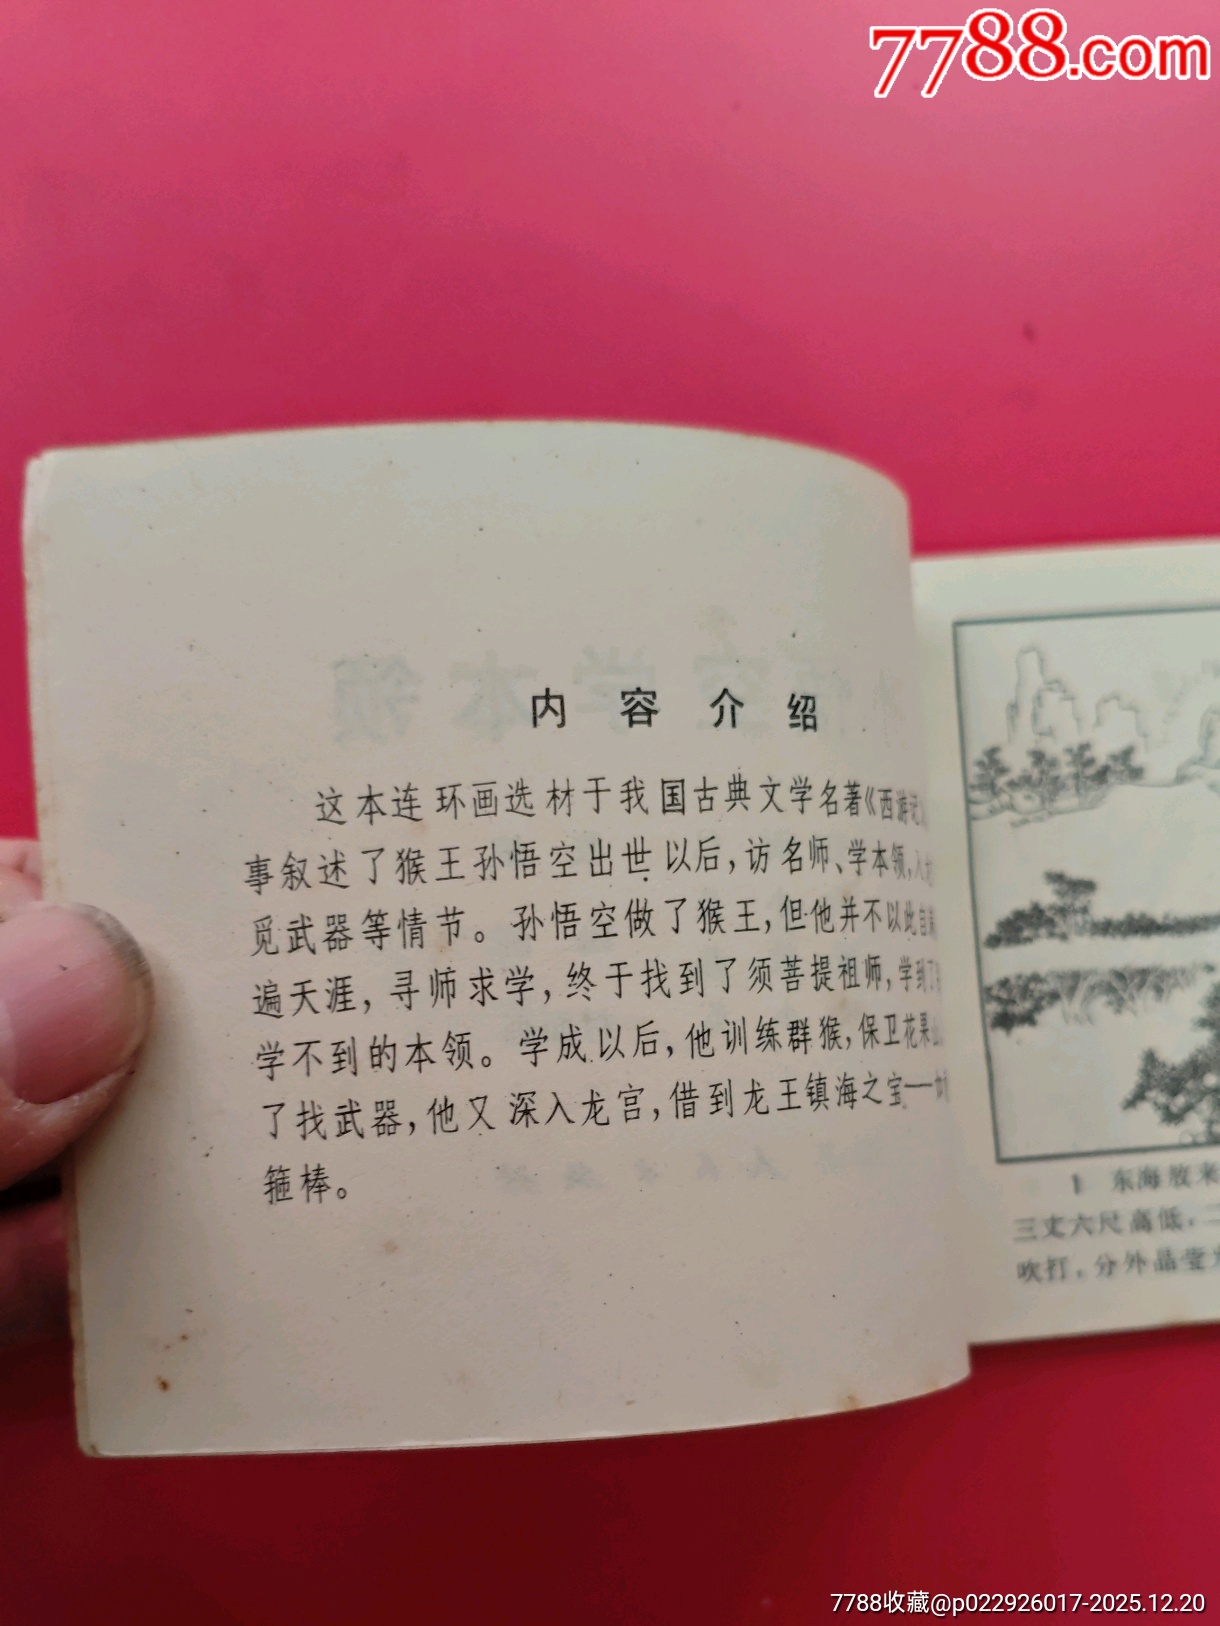 7788.com
内容介绍
这本连环画选材于我国古典文学名著《西游记》
事叙述了猴王孙悟空出世以后，访名师、学本领，入
觅武器等情节。孙悟空做了猴王，但他并不以此自
遍天涯，寻师求学，终于找到了须菩提祖师，学到了
学不到的本领。学成以后，他训练群猴，保卫花果
了找武器，他又深入龙宫，借到龙王镇海之宝——
箍棒。
1 东海敖来
三丈六尺高低，二
吹打，分外晶莹
7788收藏@p022926017-2025.12.20